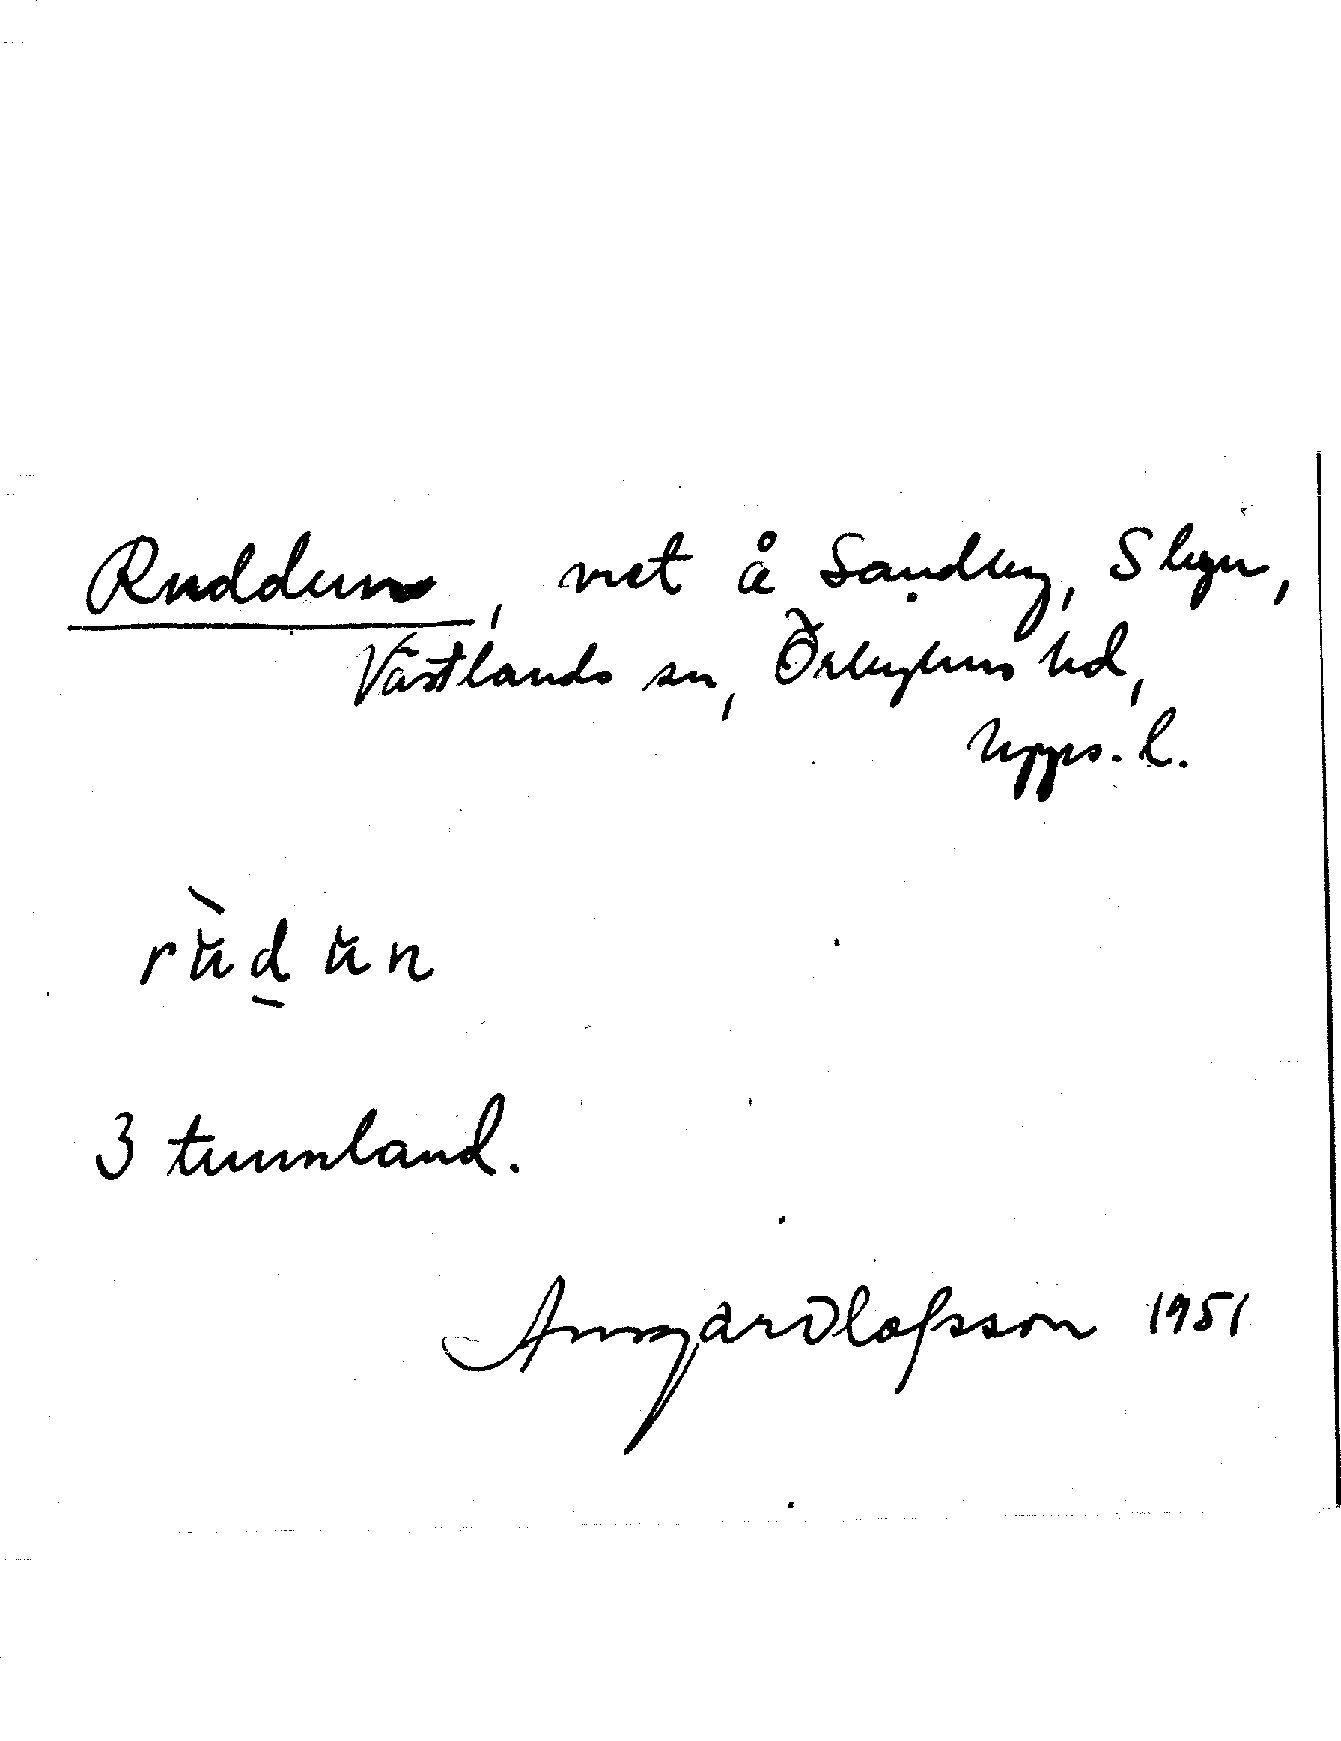 Ruddun, vret å Sandby, Slyn,
Västlands sn, Örbyhus hd,
Upps. l.
rùdun
3 tunnland.
Ansgar Olofsson 1951